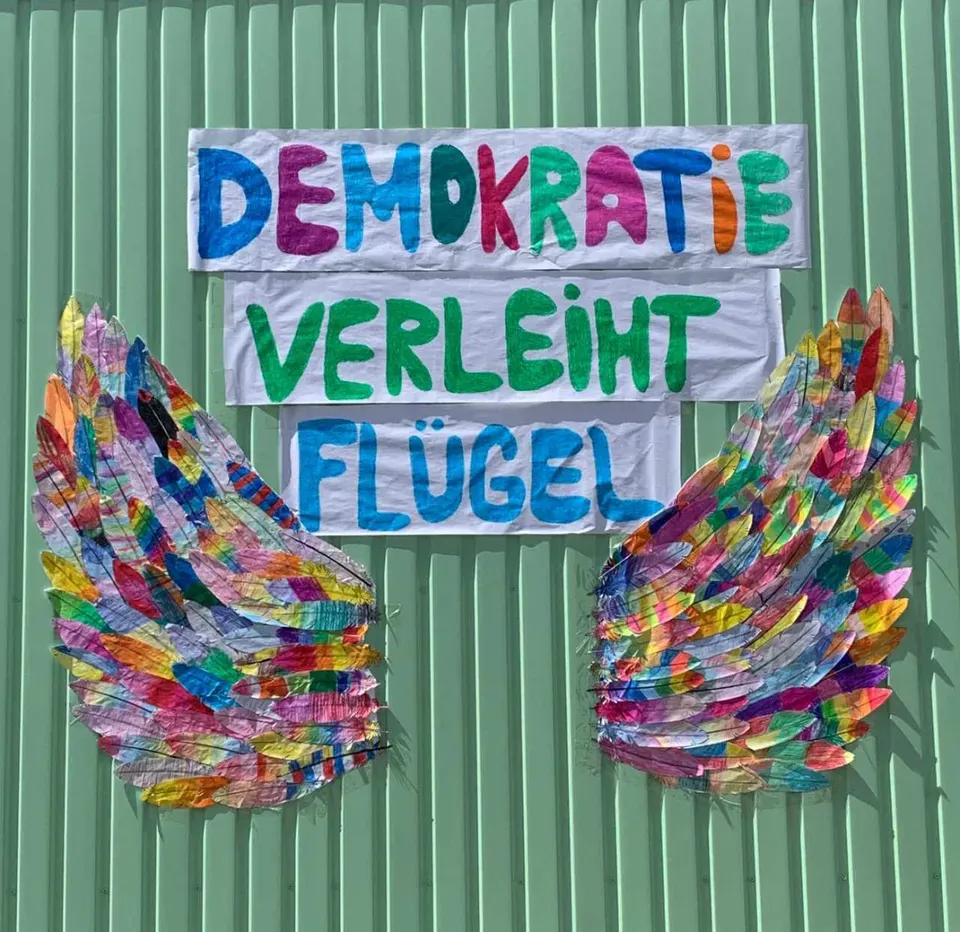 DEMOKRATiE
VERLEiHT
FLÜGEL